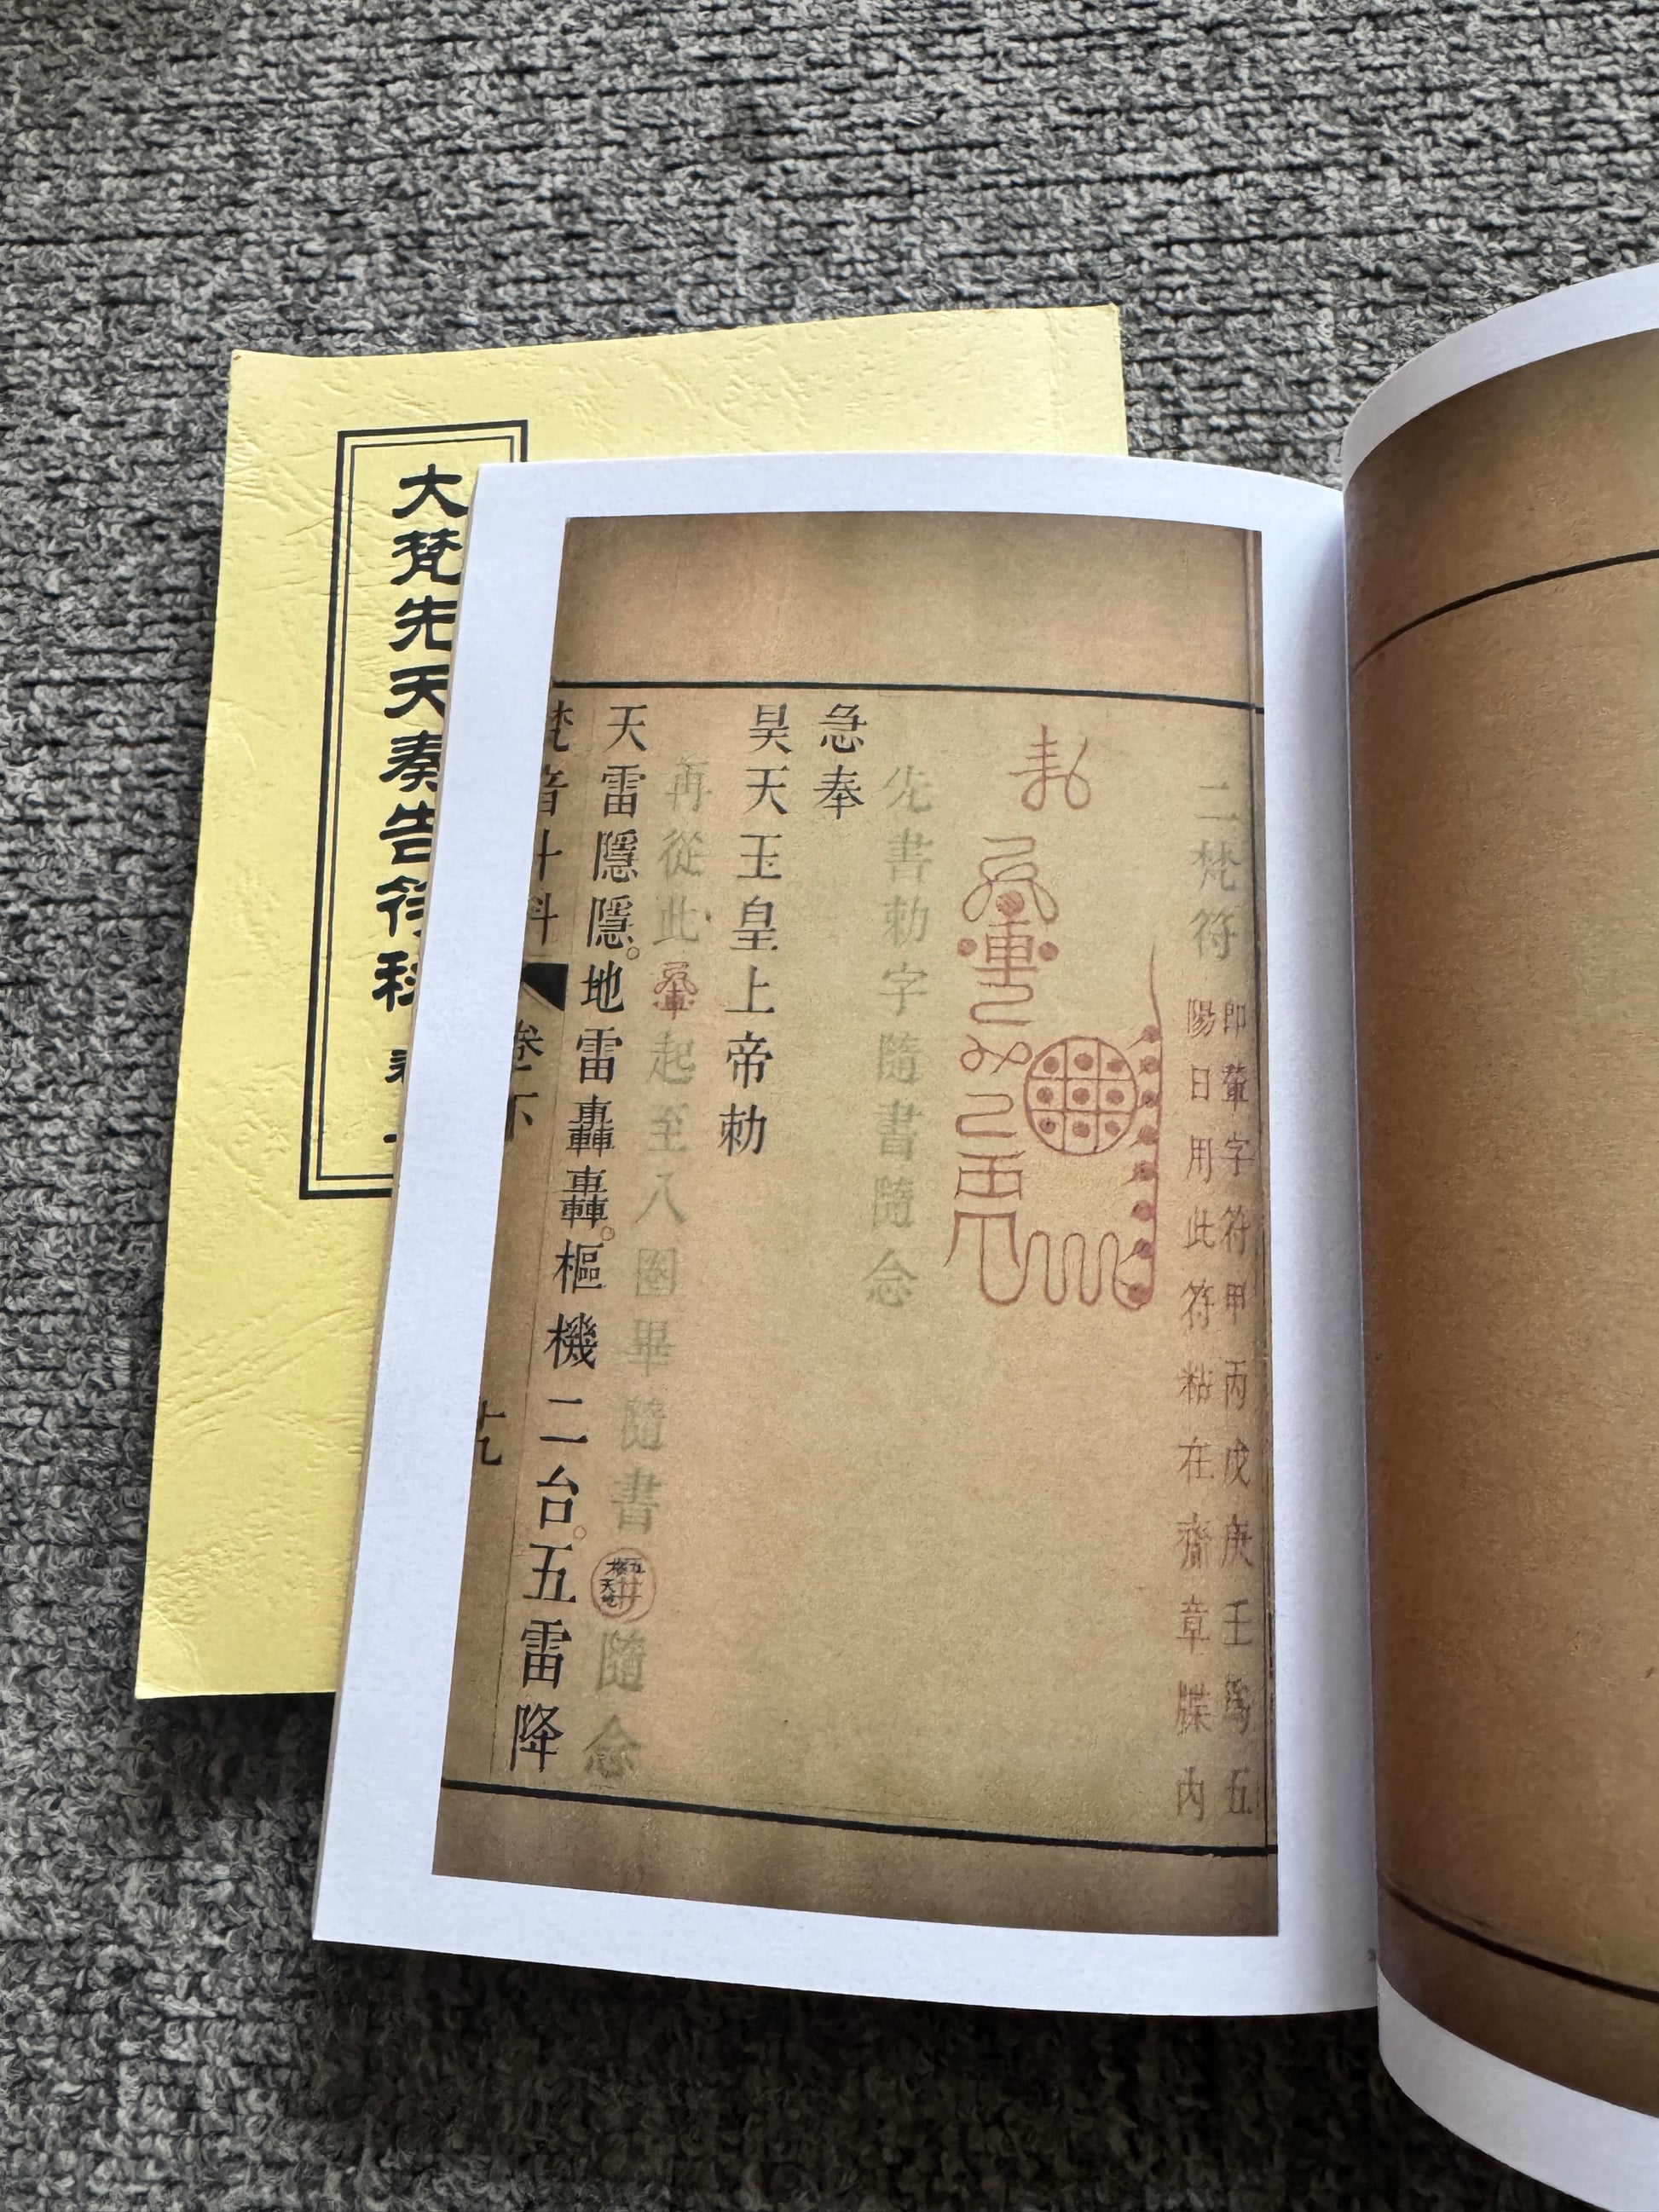 二梵符
即輦字符甲丙戊庚壬為五
陽日用此符粘在齋章牒內
先書勅字隨書隨念
急奉
昊天玉皇上帝勅
再從此
起至入圈畢隨書
隨念
天雷隱隱。地雷轟轟。樞機二台。五雷降
梵音斗科
卷下
十九
大梵先天奏告符秘